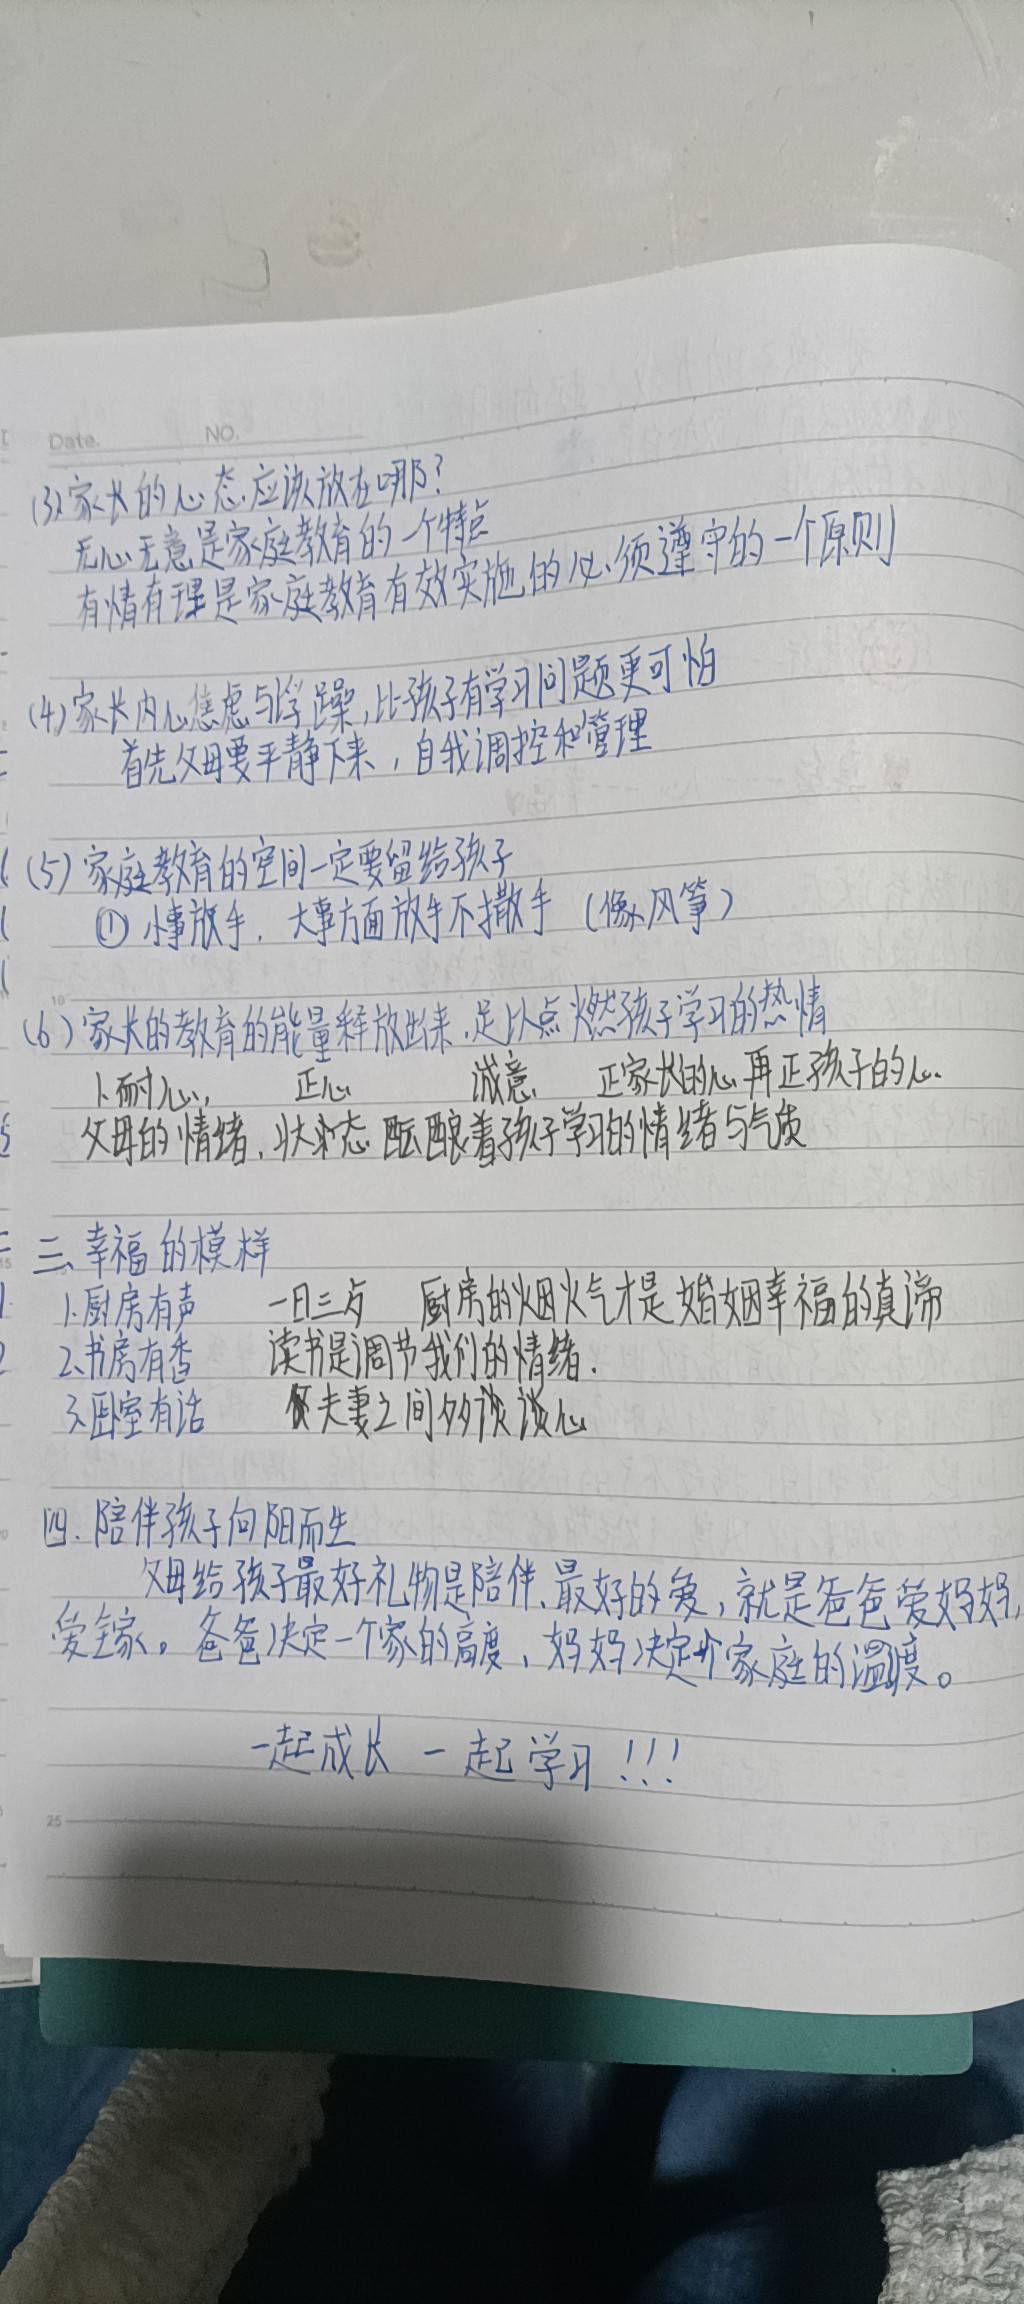 Date. NO.
(3)家长的心态应该放在哪?
无心无意是家庭教育的一个特点
有情有理是家庭教育有效实施的必须遵守的一个原则
(4)家长内心焦虑与浮躁,比孩子有学习问题更可怕
首先父母要平静下来,自我调控和管理
(5)家庭教育的空间一定要留给孩子
① 小事放手. 大事方面放手不撒手 (像风筝)
10
(6)家长的教育的能量释放出来,足以点燃孩子学习的热情
1.耐心, 正心 诚意. 正家长的心 再正孩子的心.
父母的情绪,状态 酝酿着孩子学习的情绪与气质
15
三、幸福的模样
1.厨房有声 一日三 厨房的烟火气才是婚姻幸福的真谛
2.书房有香 读书是调节我们的情绪.
3.卧室有话 夫妻之间多谈谈心
四.陪伴孩子向阳而生
父母给孩子最好礼物是陪伴,最好的爱,就是爸爸爱妈妈,
爱全家。爸爸决定一个家的高度,妈妈决定个家庭的温度。
一起成长 一起学习!!!
25